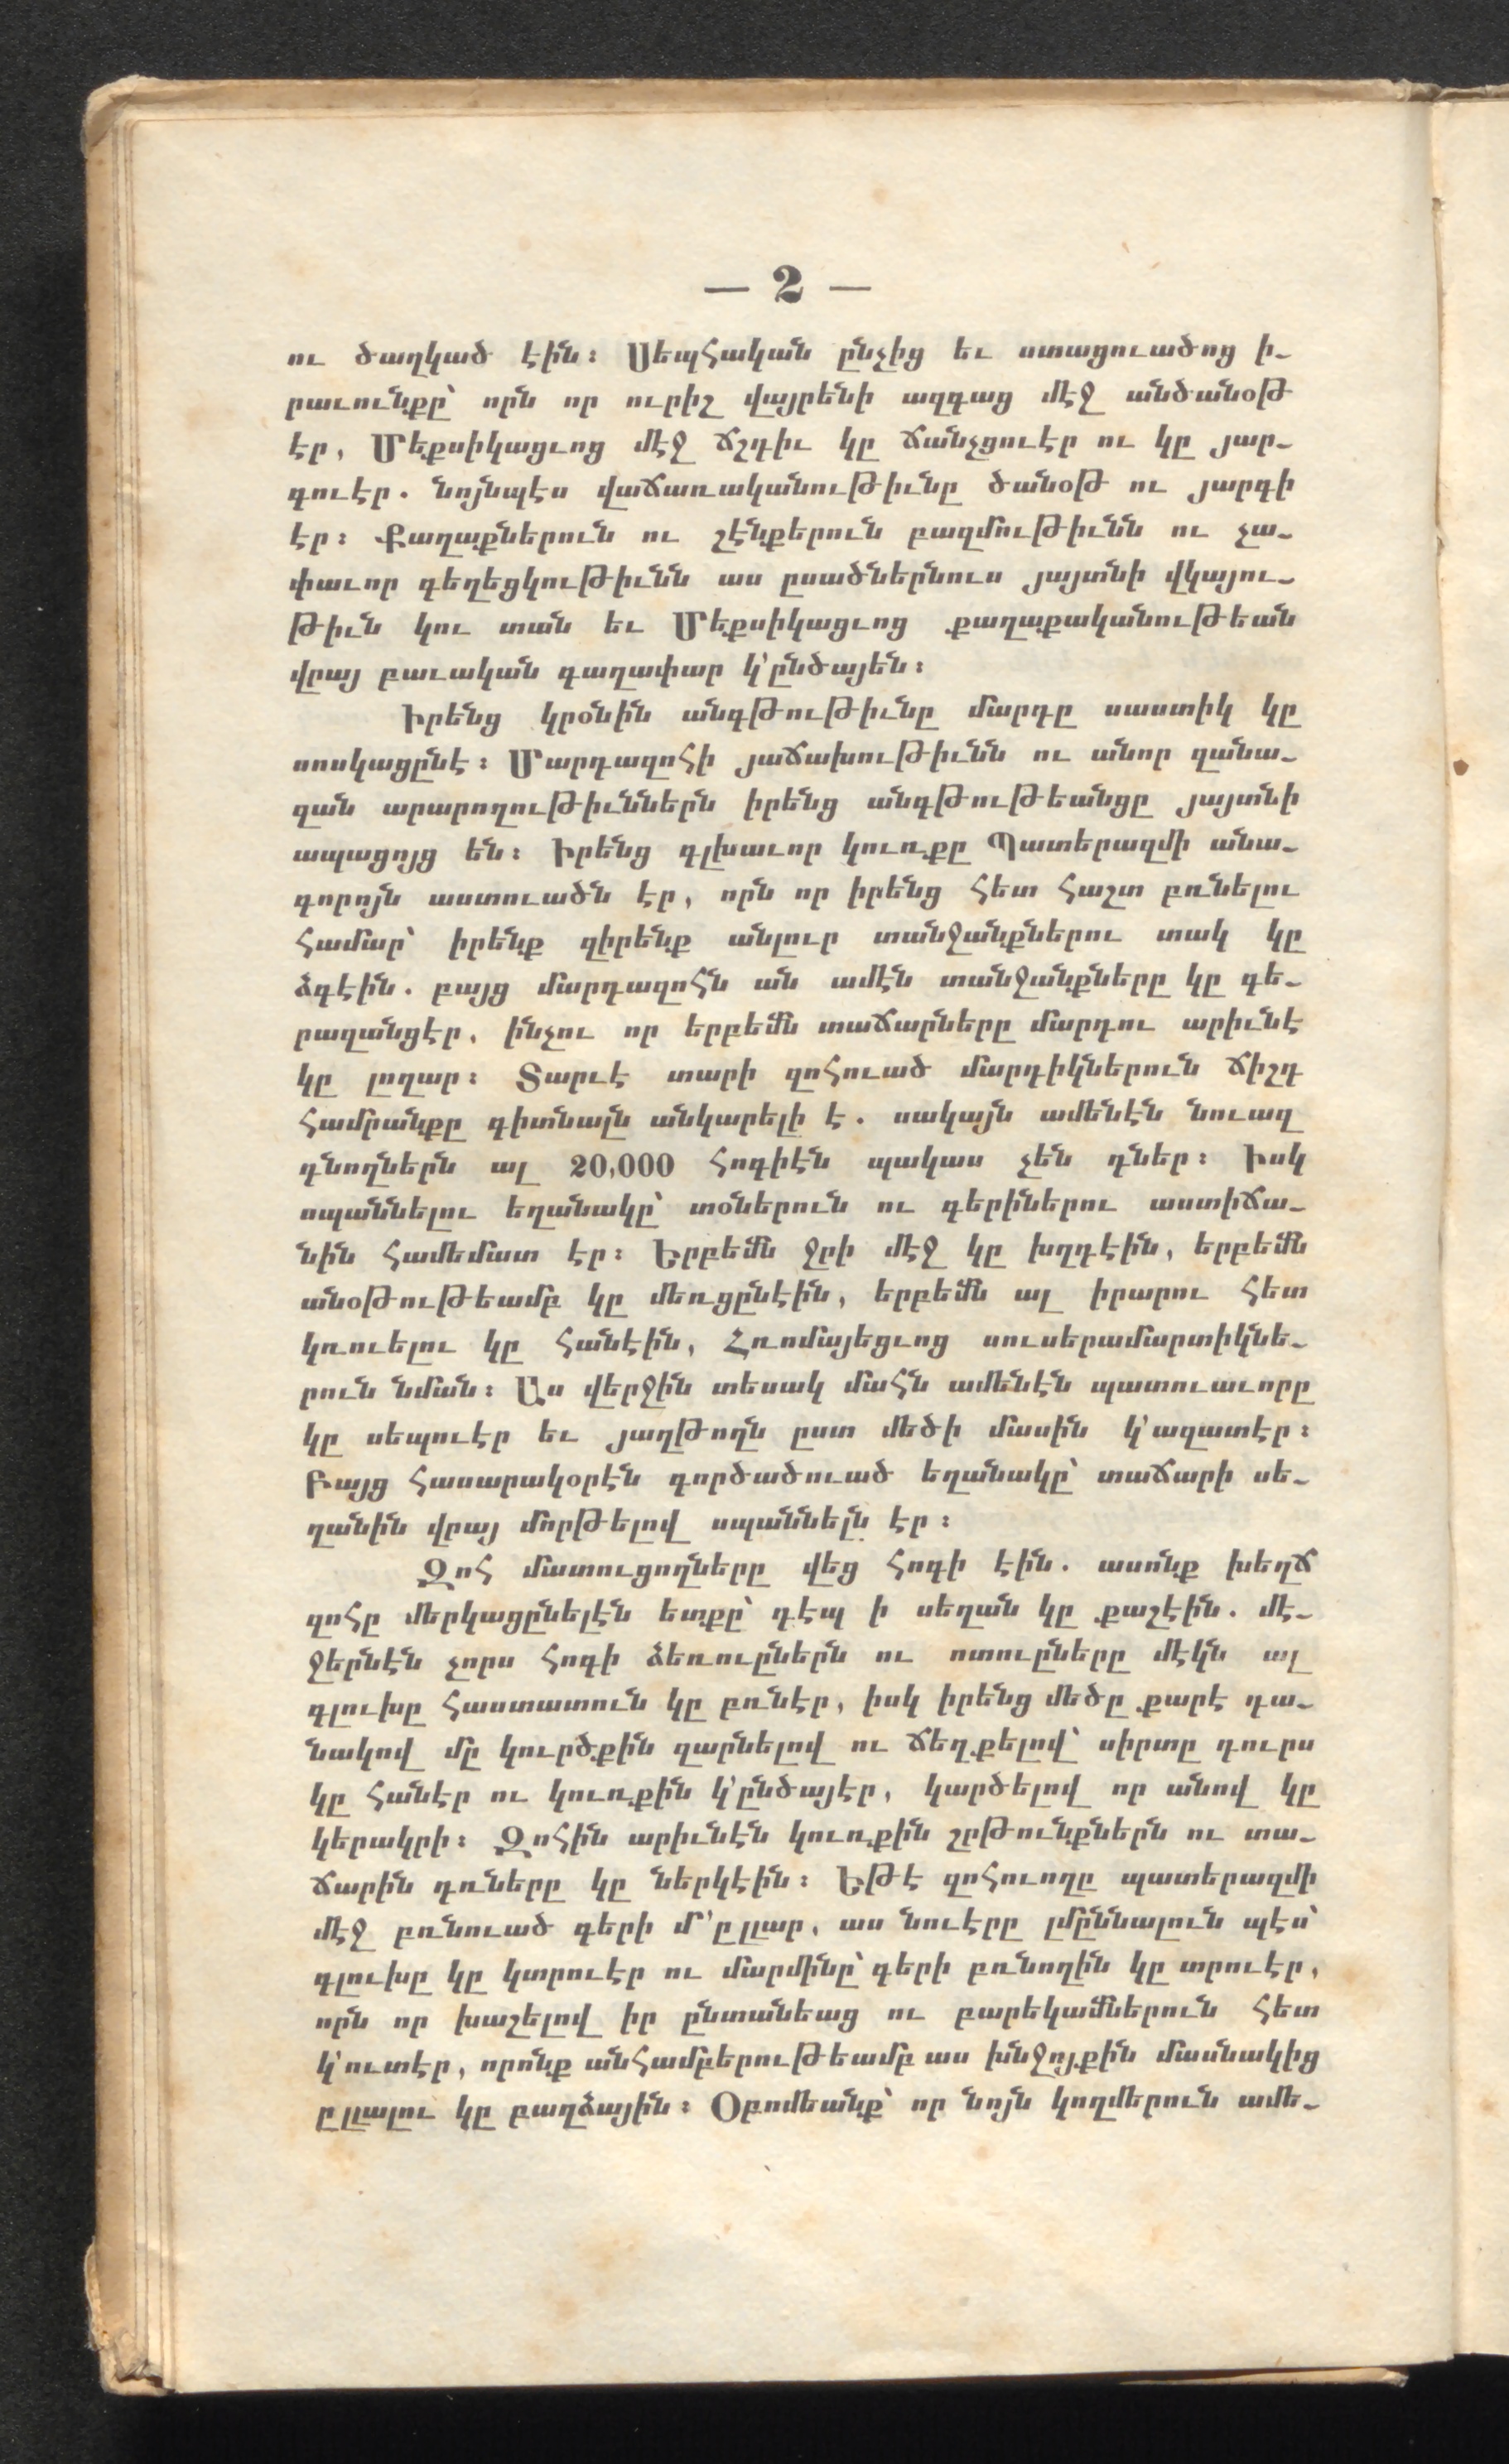 — 2 —
ու ծաղկած էին։ Սեպհական ընչից եւ ստացուածոց ի-
րաւունքը՝ որն որ ուրիշ վայրենի ազգաց մէջ անծանօթ
էր, Մեքսիկացւոց մէջ ճշդիւ կը ճանչցուէր ու կը յար-
գուէր. նոյնպէս վաճառականութիւնը ծանօթ ու յարգի
էր։ Քաղաքներուն ու շէնքերուն բազմութիւնն ու չա-
փաւոր գեղեցկութիւնն աս ըսածներնուս յայտնի վկայու-
թիւն կու տան եւ Մեքսիկացւոց քաղաքականութեան
վրայ բաւական գաղափար կ՚ընծայեն։
Իրենց կրօնին անգթութիւնը մարդը սաստիկ կը
սոսկացընէ։ Մարդազոհի յաճախութիւնն ու անոր զանա-
զան արարողութիւններն իրենց անգթութեանցը յայտնի
ապացոյց են։ Իրենց գլխաւոր կուռքը Պատերազմի անա-
գորոյն աստուածն էր, որն որ իրենց հետ հաշտ բռնելու
համար՝ իրենք զիրենք անլուր տանջանքներու տակ կը
ձգէին. բայց մարդազոհն ան ամէն տանջանքները կը գե-
րազանցէր, ինչու որ երբեմն տաճարները մարդու արիւնէ
կը լողար։ Տարւէ տարի զոհուած մարդիկներուն ճիշդ
համրանքը գիտնալն անկարելի է. սակայն ամենէն նուազ
դնողներն ալ 20,000 հոգիէն պակաս չեն դներ։ Իսկ
սպաննելու եղանակը՝ տօներուն ու գերիներու աստիճա-
նին համեմատ էր։ Երբեմն ջրի մէջ կը խղդէին, երբեմն
անօթութեամբ կը մեռցընէին, երբեմն ալ իրարու հետ
կռուելու կը հանէին, Հռոմայեցւոց սուսերամարտիկնե-
րուն նման։ Աս վերջին տեսակ մահն ամենէն պատուաւորը
կը սեպուէր եւ յաղթողն ըստ մեծի մասին կ՚ազատէր։
Բայց հասարակօրէն գործածուած եղանակը՝ տաճարի սե-
ղանին վրայ մորթելով սպաննելն էր։
Զոհ մատուցողները վեց հոգի էին. ասոնք խեղճ
զոհը մերկացընելէն ետքը՝ դէպ ի սեղան կը քաշէին. մէ-
ջերնէն չորս հոգի ձեռուըներն ու ոտուըները մէկն ալ
գլուխը հաստատուն կը բռնէր, իսկ իրենց մեծը քարէ դա-
նակով մը կուրծքին զարնելով ու ճեղքելով՝ սիրտը դուրս
կը հանէր ու կուռքին կ՚ընծայէր, կարծելով որ անով կը
կերակրի։ Զոհին արիւնէն կուռքին շրթունքներն ու տա-
ճարին դռները կը ներկէին։ Եթէ զոհուողը պատերազմի
մէջ բռնուած գերի մ՚ըլլար, աս նուէրը լմըննալուն պէս՝
գլուխը կը կտրուէր ու մարմինը՝ գերի բռնողին կը տրուէր,
որն որ խաշելով իր ընտանեաց ու բարեկամներուն հետ
կ՚ուտէր, որոնք անհամբերութեամբ աս խնջոյքին մասնակից
ըլլալու կը բաղձային։ Օբոմեանք՝ որ նոյն կողմերուն ամե-